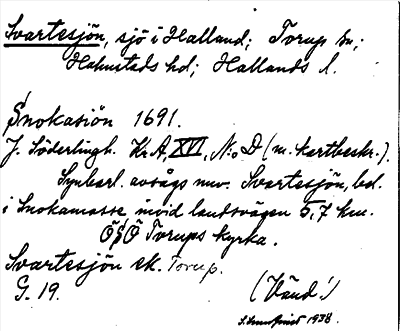 Svartesjön, sjö i Halland; Torup sn;
Halmstads hd; Hallands l.
Snokasiön 1691.
J. Söderlingh. Kr.A, XVI, N:o D (m. kartbeskr.).
Synbarl. avsågs nuv. Svartesjön, bel.
i Snokamosse invid landsvägen 5,7 km.
ÖSÖ Torups kyrka.
Svartesjön ek. Torup.
G. 19.
(Vänd!)
1938.